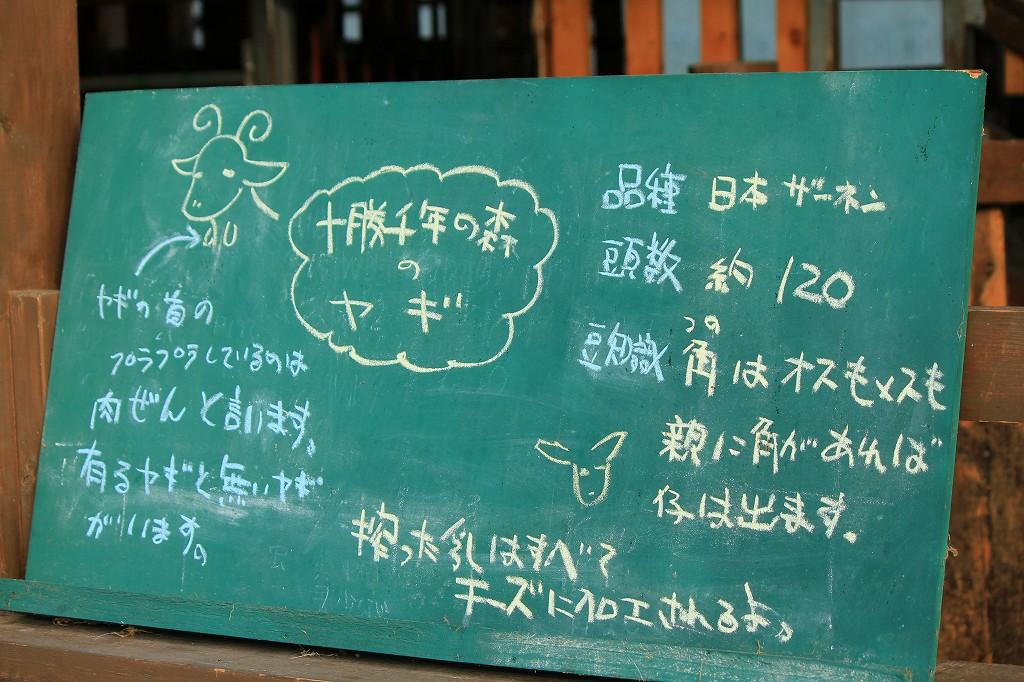 十勝千年の森
の
ヤギ
ヤギの首の
プラプラしているのは
肉ぜんと言います。
有るヤギと無いヤギ
がいます。
品種 日本ザーネン
頭数 約120
つの
豆知識 角はオスもメスも
親に角があれば
仔は出ます。
搾った乳はすべて
チーズに加工されるよ。